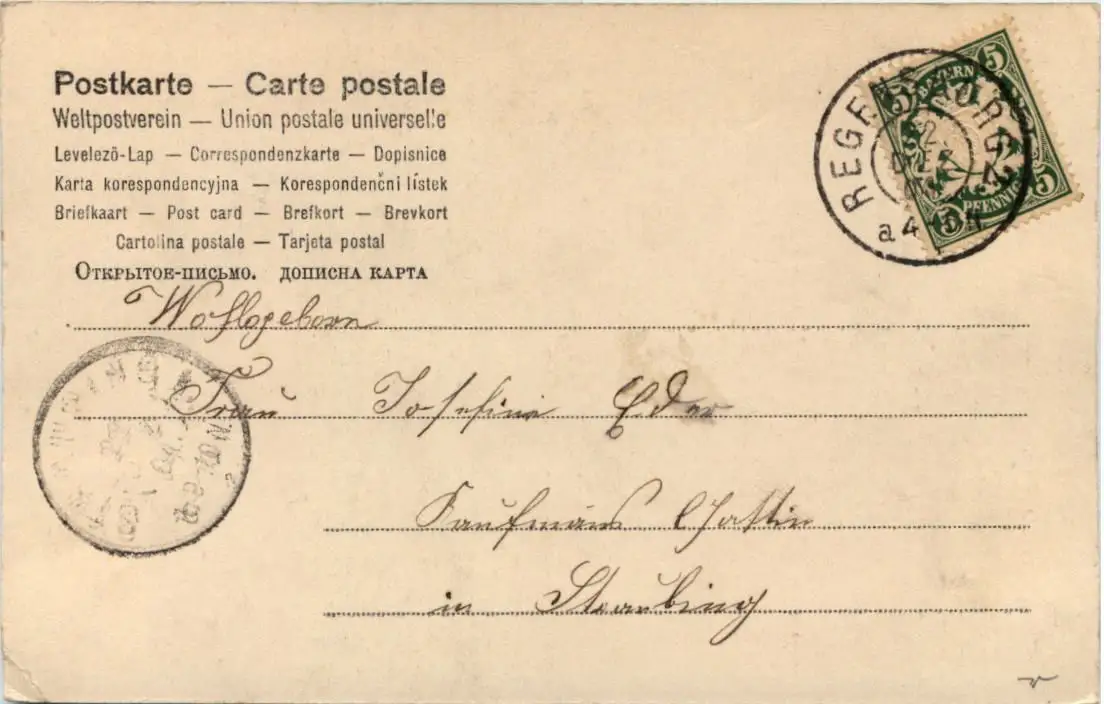 Postkarte — Carte postale
Weltpostverein — Union postale universelle
Levelező-Lap — Correspondenzkarte — Dopisnice
Karta korespondencyjna — Korespondenční lístek
Briefkaart — Post card — Brefkort — Brevkort
Cartolina postale — Tarjeta postal
Открытое-письмо. дописна карта
REGENSBURG 2
2
DEZ
a 4-5 N
5
BAYERN
5
5
PFENNIG
5
Wohlgeborn
Frau Josefine Eder
Kaufmans Gattin
in Straubing